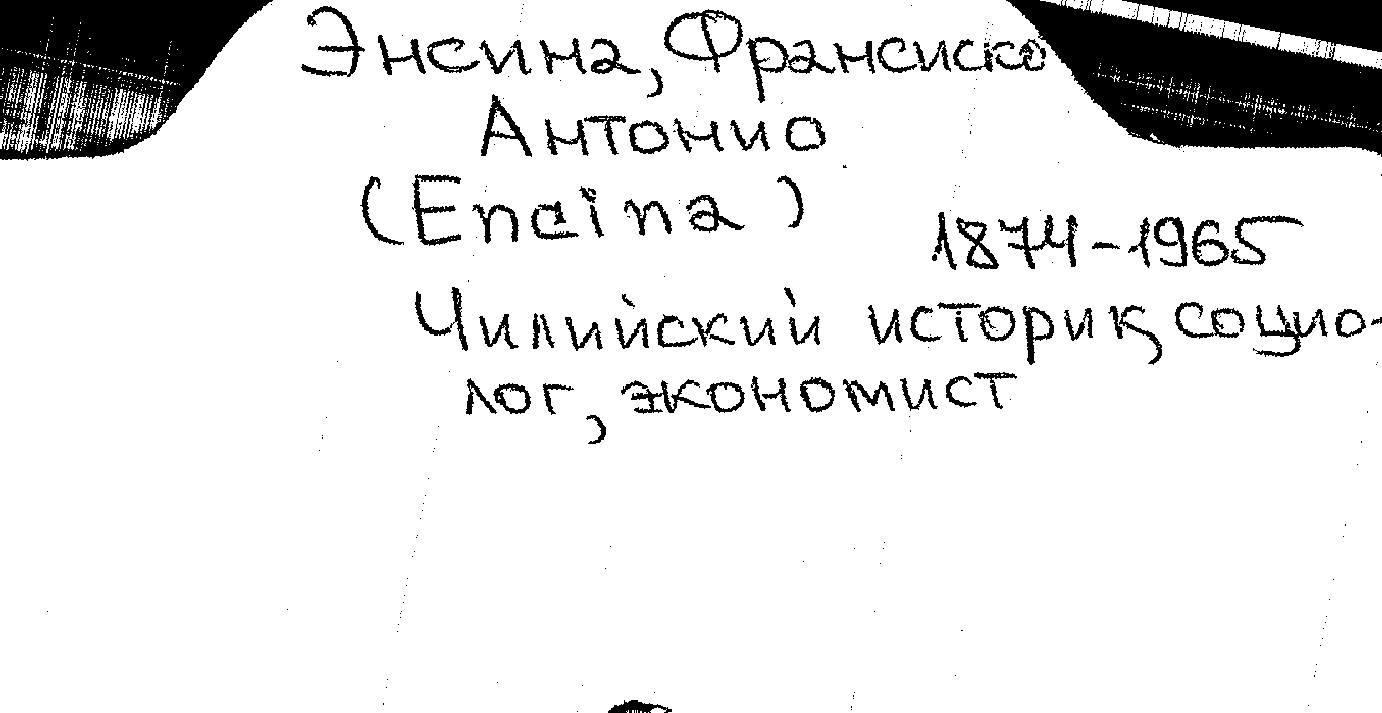 Энсина, Франсиско
Антонио
(Encina)
1874-1965
Чилийский историк, социо-
лог, экономист